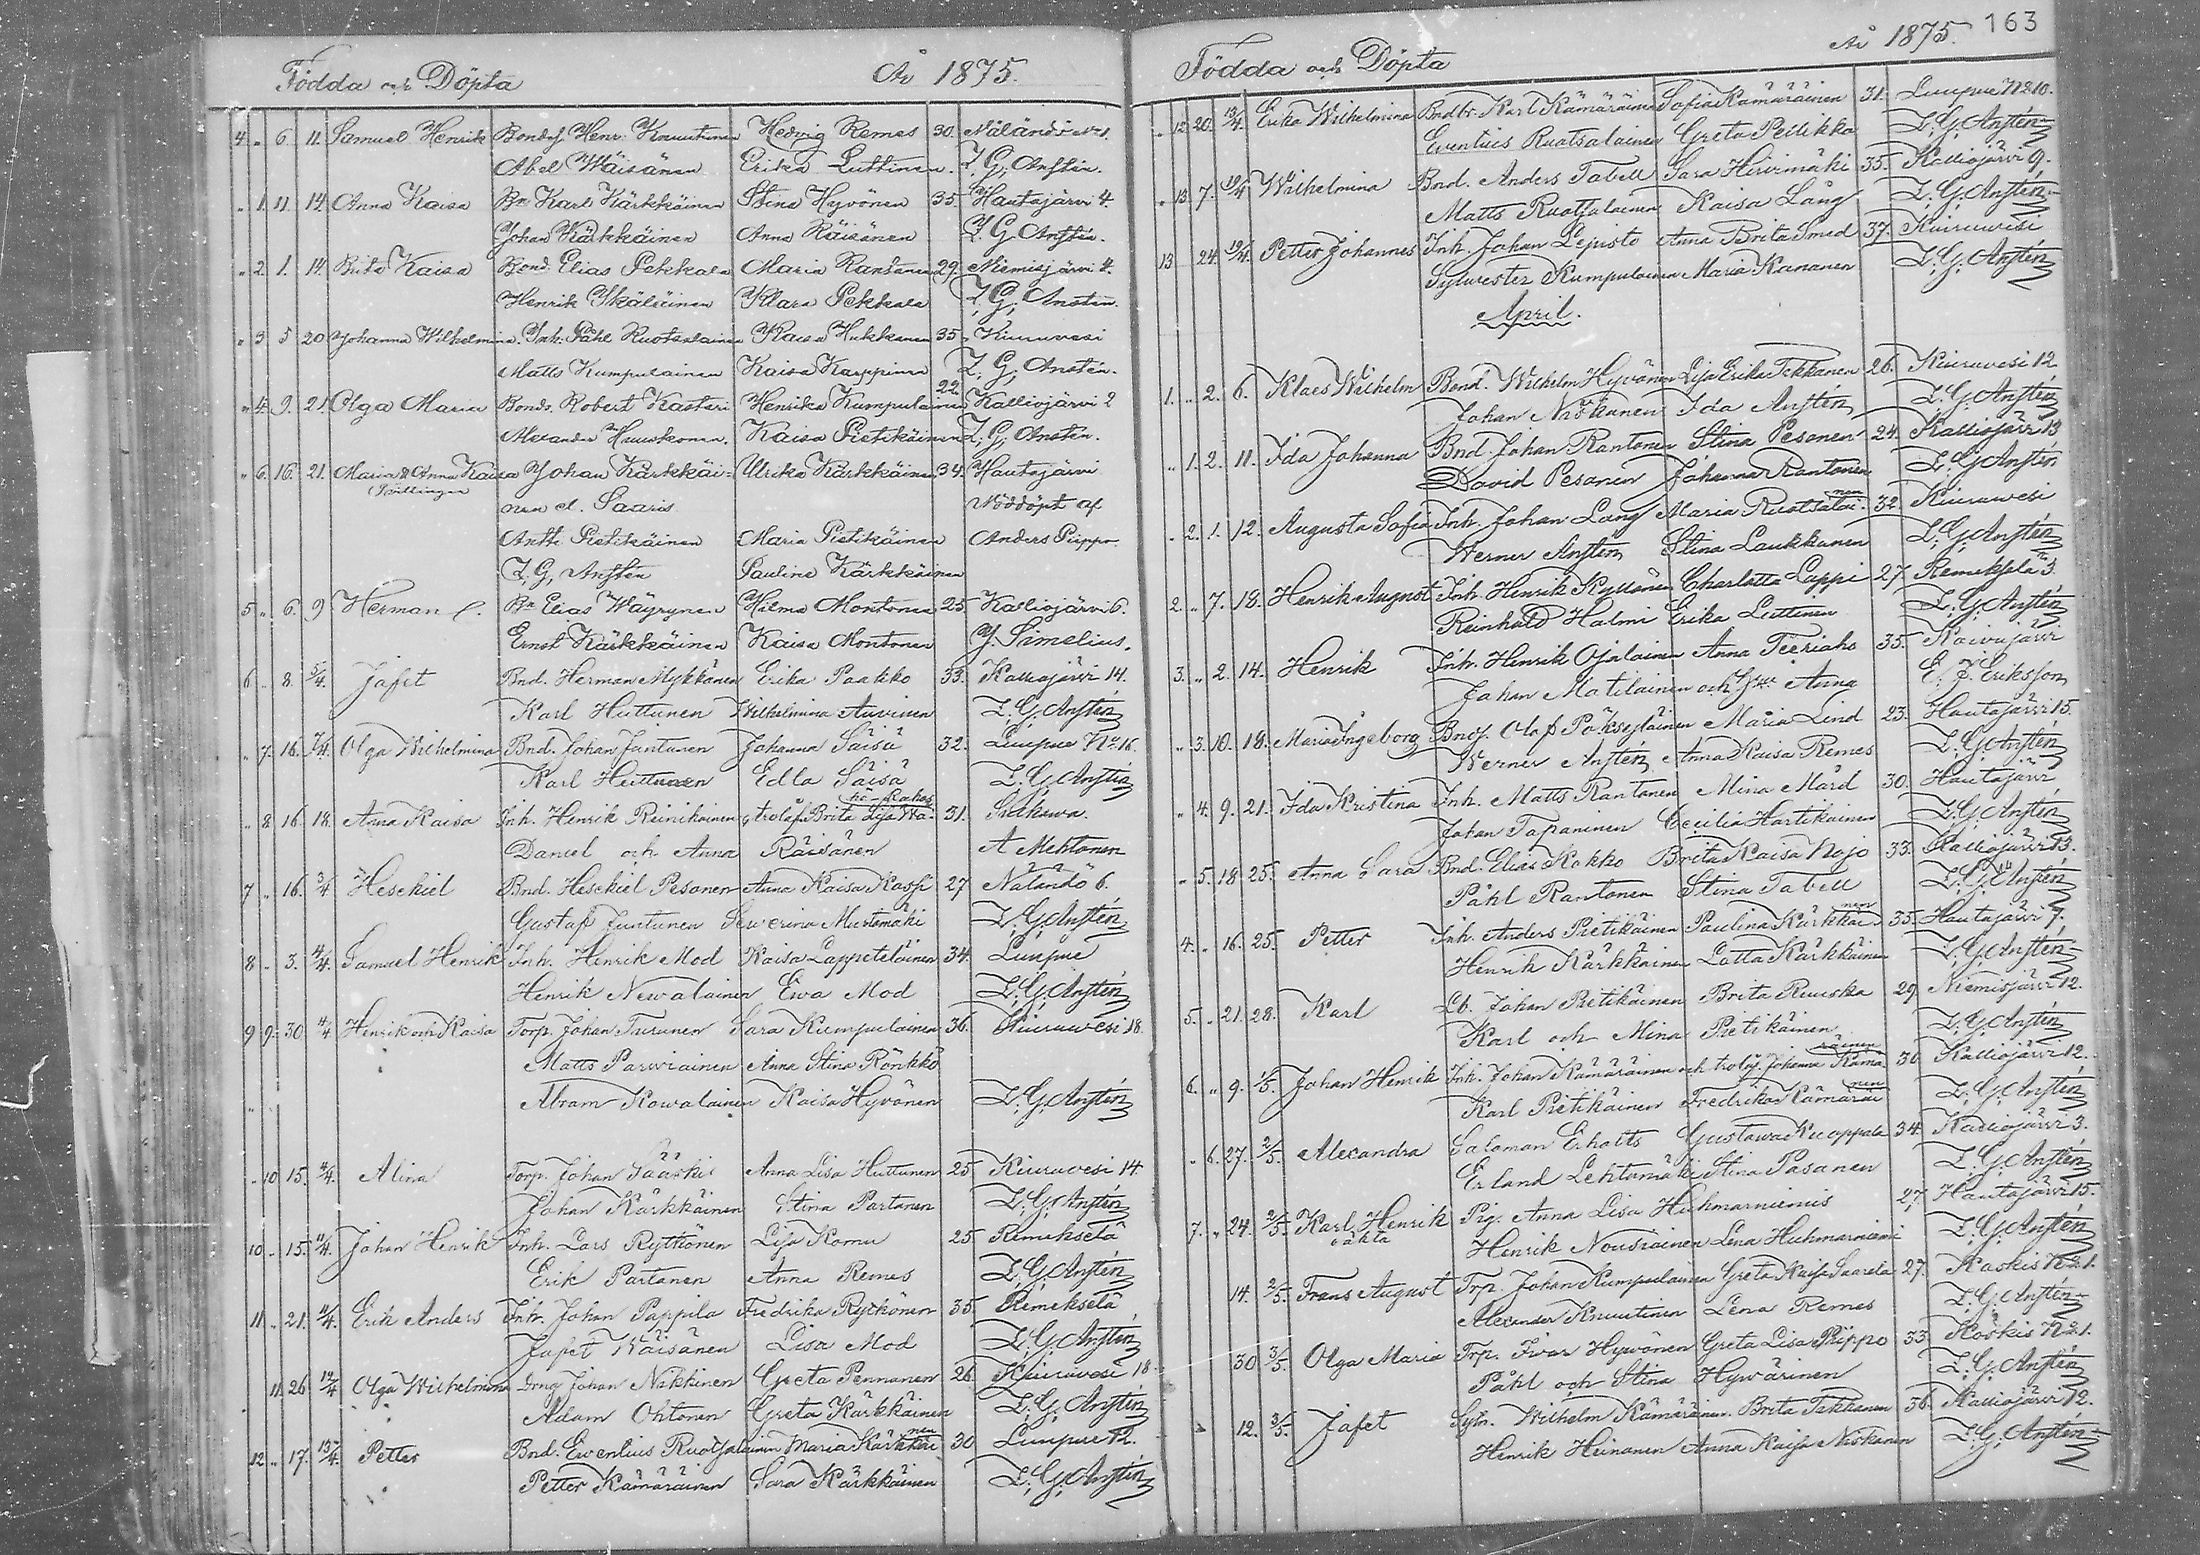 Födda och Döpta År 1875.
4 „ 6 11 Samuel Henrik Bondes. Henr. Knuutinen Hedvig Remes 30. Näländö N:o 1.
Abel Wäisänen Erika Luttinen. Z. G. Anstén.
„ 1. 11. 14. Anna Kaisa Bn Karl Kärkkäinen Stina Hyvönen 35. Hautajärvi 4.
Johan Kärkkäinen Anna Räisänen Z. G. Anstén.
„ 2. 1. 14. Brita Kaisa Bond. Elias Pekkala Maria Rantanen 29. Niemisjärvi 4.
Henrik Ykäläinen Klara Pekkala Z. G. Anstén.
„ 3 5 20 Johanna Wilhelmina Inh. Påhl Ruotsalainen Kaisa Hukkanen 35. Kiuruvesi
Matts Kumpulainen Kaisa Karppinen Z. G. Anstén.
„ 4. 9. 21. Olga Maria Bonds. Robert Kastari Henrika Kumpulainen 22. Kalliojärvi 2
Alexander Huuskonen. Kaisa Pietikäinen Z. G. Anstén.
„ 6. 16. 21. Maria & Anna Kaisa Johan Kärkkäi- Ulrika Kärkkäinen 34. Hautajärvi
(Tvillingar nen el. Saaris Nöddöpt af
Antti Pietikäinen Maria Pietikäinen Anders Piippo
Z. G. Anstén Paulina Kärkkäinen
5 „ 6. 9 Herman Bn Elias Wäyrynen Hilma Montonen 25. Kalliojärvi 6.
Ernst Kärkkäinen Kaisa Montonen J. Simelius.
6 „ 8. 5/4. Jafet Bnd. Herman Mykkänen Erika Paakko 33. Kalliojärvi 14.
Karl Huttunen Wilhelmina Auvinen Z. G. Anstén
„ 7. 16. 7/4. Olga Wilhelmina Bnd. Johan Juntunen Johanna Säisä 32. Luupue N:o 16.
Karl Huttunen Edla Säisä Z. G. Anstén
„ 8. 16. 18. Anna Kaisa Inh. Henrik Reinikainen & trolöf. Brita Lisa Wä- 31. Sulkawa.
Daniel och Anna Räisänen A Mehtonen
7 „ 16. 3/4 Heschiel Bnd. Heschiel Pesonen Anna Kaisa Kassi 27 Näländö 6.
Gustaf Juntunen Sewerina Mustamäki Z. G. Anstén
8 „ 3. 4/4. Samuel Henrik Inh. Henrik Mod Kaisa Lappeteläinen 34. Luupue
Henrik Newalainen Ewa Mod Z. G. Anstén
9 9. 30 4/4 Henrik och Kaisa Torp. Johan Turunen Sara Kumpulainen 36. Kiuruwesi 18.
Matts Parwiainen Anna Stina Rönkkö
Abram Kowalainen Kaisa Hyvönen Z. G. Anstén
„ 10 15. 4/4. Alina Torp. Johan Sääski Anna Lisa Huttunen 25 Kiuruvesi 14.
Johan Kärkkäinen Stina Partanen Z. G. Anstén
10 „ 15. 11/4. Johan Henrik Inh. Lars Rytkönen Lisa Komu 25 Remekselä
Erik Partanen Anna Remes Z. G. Anstén
11 „ 21. 11/4. Erik Anders Inh. Johan Pappila Fredrika Rytkönen 35. Remekselä
Jafet Wäisänen Lisa Mod Z. G. Anstén
„ 11. 26 12/4 Olga Wilhelmina Drng Johan Nikkinen Greta Pennanen 26. Kiuruvesi 18.
Adam Ohtonen Greta Kärkkäinen Z. G. Anstén
12 „ 17. 13/4. Petter Bnd. Ewentius Ruotsalainen Maria Kärkkäinen 30 Luupue 12.
Petter Kämäräinen Sara Kärkkäinen Z. G. Anstén
Födda och Döpta År 1875. 163
„ 12 20. 13/4. Erika Wilhelmina Bndbr. Karl Kämäräinen Sofia Kämäräinen 31. Luupue N:o 10.
Eventius Ruotsalainen Greta Pellikka Z. G. Anstén
„ 13. 7. 19/4 Wilhelmina Bnd. Anders Tabell Sara Hirvimäki 35. Kalliojärvi 9.
Matts Ruotsalainen Kaisa Lång Z. G. Anstén
13 24. 19/4. Petter Johannes Inh. Johan Lepistö Anna Brita Smed 37. Kiuruwesi
Sylwester Kumpulainen Maria Kananen Z. G. Anstén
April.
1. „ 2. 6. Klaes Wilhelm Bond. Wilhelm Hyvönen Lisa Erika Tikkanen 26. Kiuruvesi 12
Johan Niskanen Ida Anstén Z. G. Anstén
„ 1. 2. 11. Ida Johanna Bnd. Johan Rantonen Stina Pesonen 24. Kalliojärvi 13
David Pesonen Johanna Rantonen Z. G. Anstén
„ 2. 1. 12. Augusta Sofia Inh. Johan Lang Maria Ruotsalainen 32. Kiuruwesi
Werner Anstén Stina Laukkanen Z. G. Anstén
2. „ 7. 18. Henrik August Inh. Henrik Kyllönen Charlotta Lappi 27. Remekselä 3.
Reinhold Halmi Erika Luttinen Z. G. Anstén
3. „ 2. 14. Henrik Inh. Henrik Ojalainen Anna Teeriaho 35. Koivujärvi
Johan Matilainen och Hru Anna E. J. Eriksson
„ 3. 10. 18. Maria Ingeborg Bnds. Olof Pöksyläinen Maria Lind 23. Hautajärvi 15.
Werner Anstén Anna Kaisa Remes Z. G. Anstén
„ 4. 9. 21. Ida Kristina Inh. Matts Rantonen Mina Mård 30. Hautajärvi
Johan Tapaninen Cecilia Hartikainen Z. G. Anstén
„ 5. 18 25. Anna Sara Bnd. Elias Kokko Brita Kaisa Nojo 33. Kalliojärvi 13.
Påhl Rantonen Stina Tabell Z. G. Anstén
4. „ 16. 25. Petter Inh. Anders Pietikäinen Paulina Kärkkäinen 35. Hautajärvi 7.
Henrik Kärkkäinen Lotta Kärkkäinen Z. G. Anstén
5. „ 21. 28. Karl Johan Pietikäinen Brita Ruuska 29 Niemisjärvi 12.
Karl och Mina Pietikäinen Z. G. Anstén
6. „ 9. 1/5. Johan Henrik Inh. Johan Kämäräinen och trolof. Johanna Kämäräinen 30 Kalliojärvi 12.
Karl Pietikäinen Fredrika Kämäräinen Z. G. Anstén
„ 6. 27. 2/5. Alexandra Salomon Erholts Gustawa Kuoppala 34. Kalliojärvi 3.
Erland Lehtomäki Stina Pasanen Z. G. Anstén
7. „ 24. 2/5. Karl Henrik Pig. Anna Lisa Huhmarniemis 27 Hautajärvi 15.
oäkta Henrik Nousiainen Lena Huhmarniemi Z. G. Anstén
14. 2/5. Frans August Trp. Johan Kumpulainen Greta Kaisa Saarela 27. Koskis N:o 1.
Alexander Knuutinen Lena Remes Z. G. Anstén
30 3/5. Olga Maria Trp. Ivar Hyvönen Greta Lisa Piippo 33. Koskis N:o 1.
Påhl och Stina Hyvärinen Z. G. Anstén
12. 3/5. Jafet Wilhelm Kämäräinen. Brita Takkanen 36. Kalliojärvi 12.
Henrik Heinanen Anna Kaisa Niskanen Z. G. Anstén